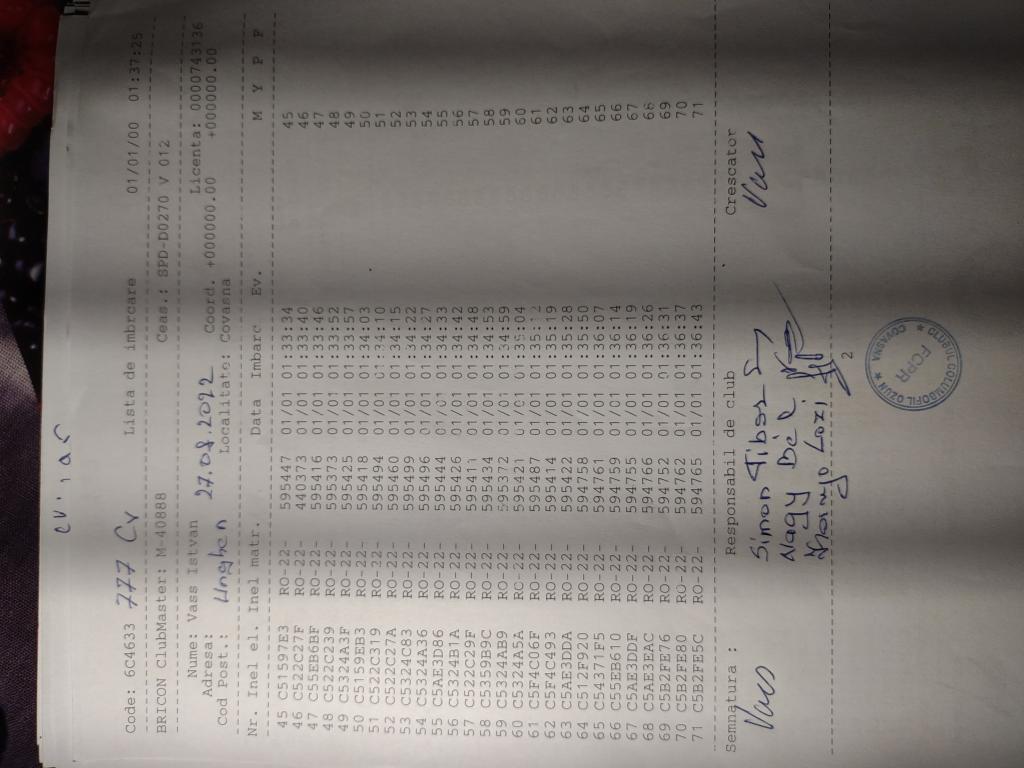 cv, iar
Code: 6C4633 777 Cv Lista de imbrcare 01/01/00 01:37:25
BRICON ClubMaster: M-40888 Ceas.: SPD-D0270 V 012
Nume: Vass Istvan Licenta: 0000743136
Adresa: 27.08.2022 Coord. +000000.00 +000000.00
Cod Post.: Unghen Localitate: Covasna
Nr. Inel el. Inel matr. Data Imbarc Ev. M Y P F
45 C51597E3 RO-22- 595447 01/01 01:33:34 45
46 C522C27F RO-22- 440373 01/01 01:33:40 46
47 C55EB6BF RO-22- 595416 01/01 01:33:46 47
48 C522C239 RO-22- 595373 01/01 01:33:52 48
49 C5324A3F RO-22- 595425 01/01 01:33:57 49
50 C5159EB3 RO-22- 595418 01/01 01:34:03 50
51 C522C319 RO-22- 595494 01/01 01:34:10 51
52 C522C27A RO-22- 595460 01/01 01:34:15 52
53 C5324C83 RO-22- 595499 01/01 01:34:22 53
54 C5324A36 RO-22- 595496 01/01 01:34:27 54
55 C5AE3D86 RO-22- 595444 01/01 01:34:33 55
56 C5324B1A RO-22- 595426 01/01 01:34:42 56
57 C522C29F RO-22- 595411 01/01 01:34:48 57
58 C5359B9C RO-22- 595434 01/01 01:34:53 58
59 C5324AB9 RO-22- 595372 01/01 01:34:59 59
60 C5324A5A RO-22- 595421 01/01 01:35:04 60
61 C5F4C06F RO-22- 595487 01/01 01:35:12 61
62 C5F4C493 RO-22- 595414 01/01 01:35:19 62
63 C5AE3DDA RO-22- 595422 01/01 01:35:28 63
64 C512F920 RO-22- 594758 01/01 01:35:50 64
65 C54371F5 RO-22- 594761 01/01 01:36:07 65
66 C55EB610 RO-22- 594759 01/01 01:36:14 66
67 C5AE3DDF RO-22- 594755 01/01 01:36:19 67
68 C5AE3EAC RO-22- 594766 01/01 01:36:26 68
69 C5B2FE76 RO-22- 594752 01/01 01:36:31 69
70 C5B2FE80 RO-22- 594762 01/01 01:36:37 70
71 C5B2FE5C RO-22- 594765 01/01 01:36:43 71
Semnatura : Responsabil de club Crescator
Vass Simon Tibor Vass
Nagy Béla
Lozi
2
CLUBUL COLUMBOFIL OZUN * COVASNA *
FCPR